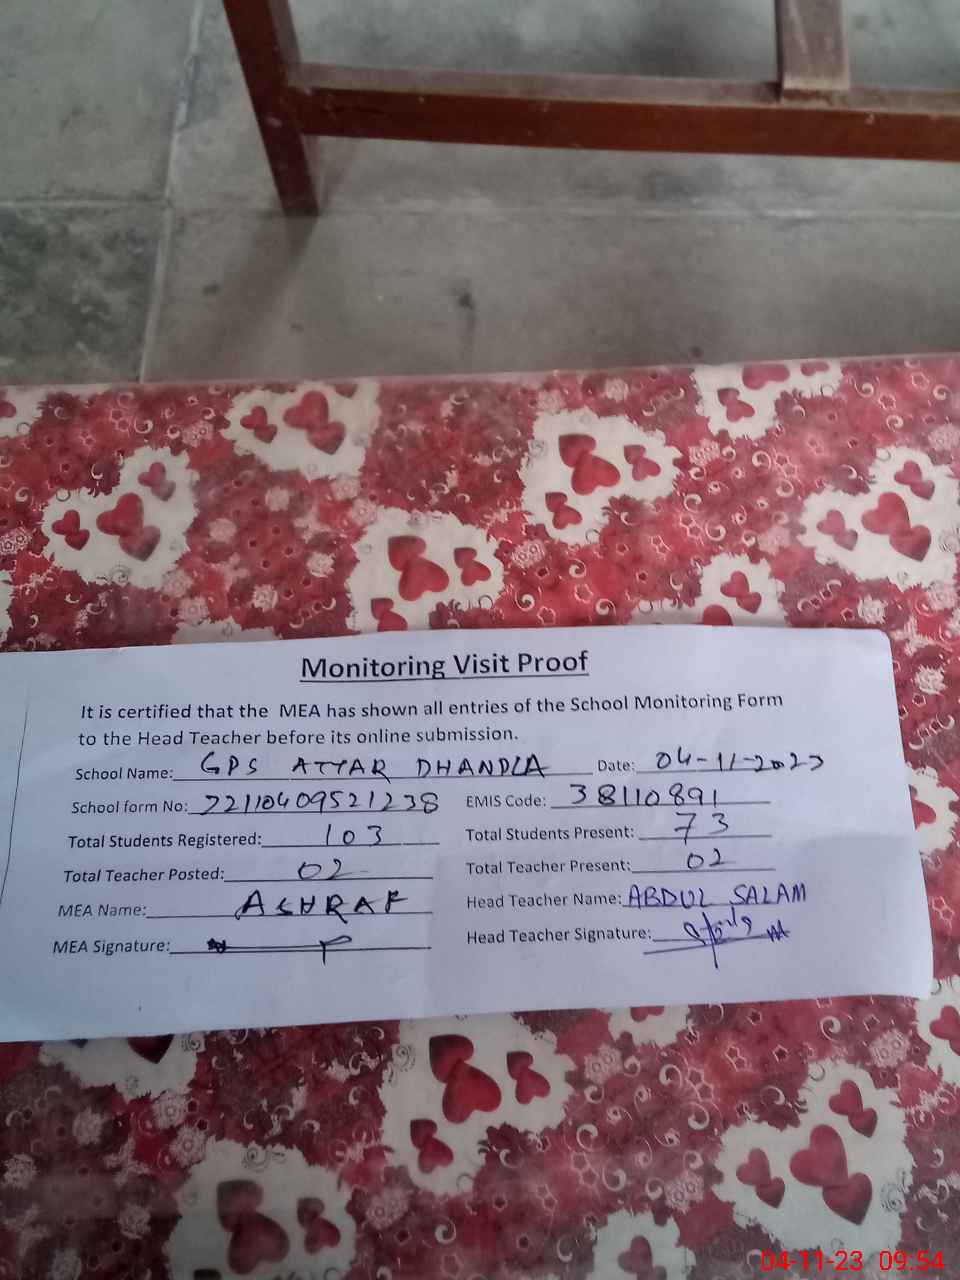 Monitoring Visit Proof
It is certified that the MEA has shown all entries of the School Monitoring Form
to the Head Teacher before its online submission.
School Name: GPS ATTAR DHANDLA Date: 04-11-2023
School form No: 22110409521238 EMIS Code: 38110891
Total Students Registered: 103 Total Students Present: 73
Total Teacher Posted: 02 Total Teacher Present: 02
MEA Name: ASHRAF Head Teacher Name: ABDUL SALAM
MEA Signature: Head Teacher Signature:
04-11-23 09:54